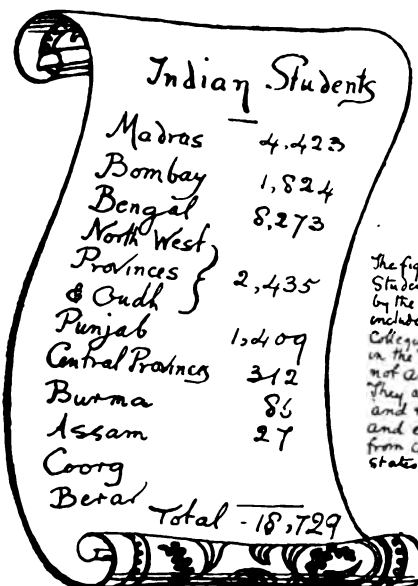 Indian Students
Madras 4,423
Bombay 1,824
Bengal 8,273
North West
Provinces
& Oudh 2,435
Punjab 1,409
Central Provinces 312
Burma 86
Assam 27
Coorg
Berar
Total - 18,729
The
by the
in the
not
They
and
and
from
states